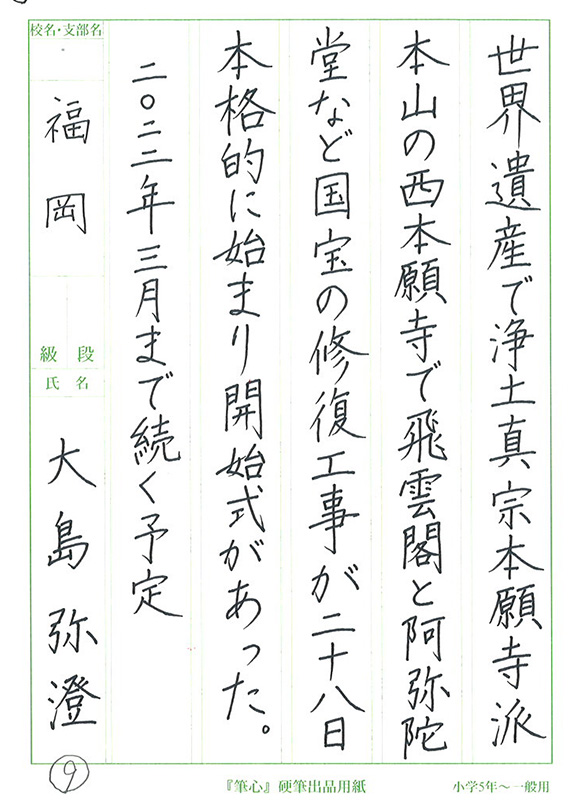 世界遺産で浄土真宗本願寺派
本山の西本願寺で飛雲閣と阿弥陀
堂など国宝の修復工事が二十八日
本格的に始まり開始式があった。
二〇二二年三月まで続く予定
校名・支部名
福岡
級 段
氏名
大島弥澄
⑨
『筆心』硬筆出品用紙
小学5年〜一般用